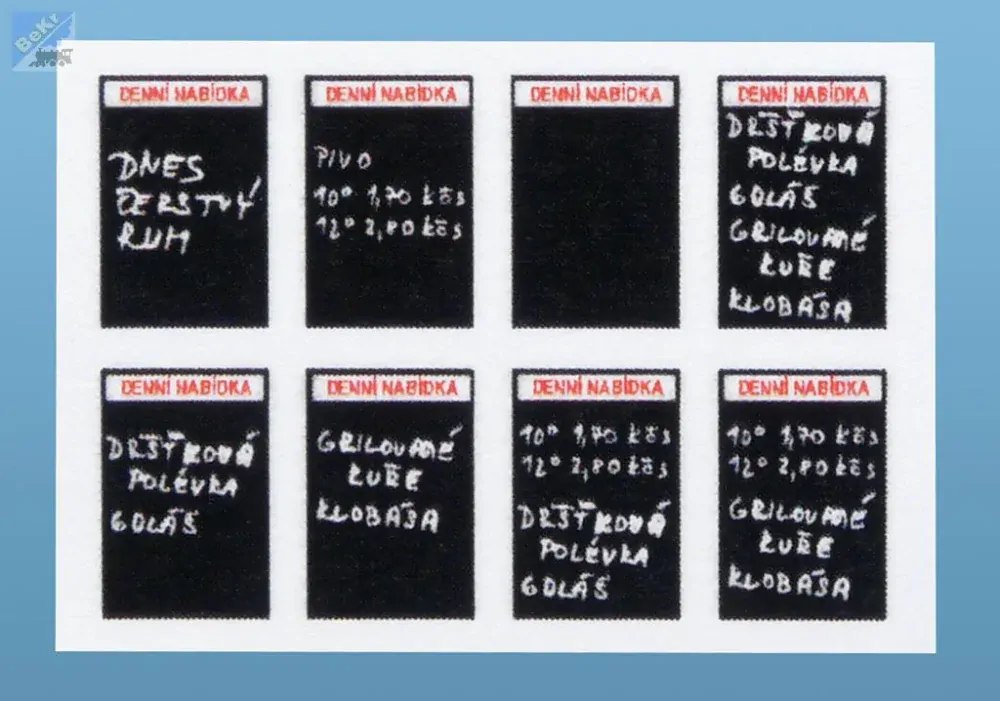 BeKr
DENNÍ NABÍDKA
DNES
ČERSTVÝ
RUM
DENNÍ NABÍDKA
PIVO
10° 1,70 kčs
12° 2,80 kčs
DENNÍ NABÍDKA
DENNÍ NABÍDKA
DRŠŤKOVÁ
POLÉVKA
GOLÁŠ
GRILOVANÉ
KUŘE
KLOBÁSA
DENNÍ NABÍDKA
DRŠŤKOVÁ
POLÉVKA
GOLÁŠ
DENNÍ NABÍDKA
GRILOVANÉ
KUŘE
KLOBÁSA
DENNÍ NABÍDKA
10° 1,70 kčs
12° 2,80 kčs
DRŠŤKOVÁ
POLÉVKA
GOLÁŠ
DENNÍ NABÍDKA
10° 1,70 kčs
12° 2,80 kčs
GRILOVANÉ
KUŘE
KLOBÁSA